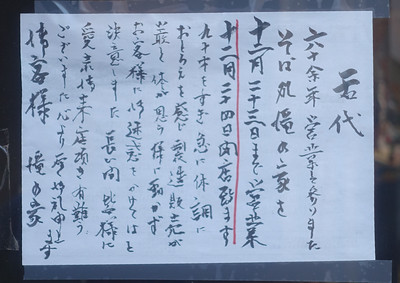 舌代
六十余年営業を参りました
そば処 滝の家を
十二月二十三日まで営業
十二月二十四日閉店致します
九十才をすぎ急に体調に
おとろえを感じ
お客様に御迷惑をかけてはと
決意しました 長い間皆様に
愛され御来店頂き有難う
ございました心より御礼申します
お客様 滝の家